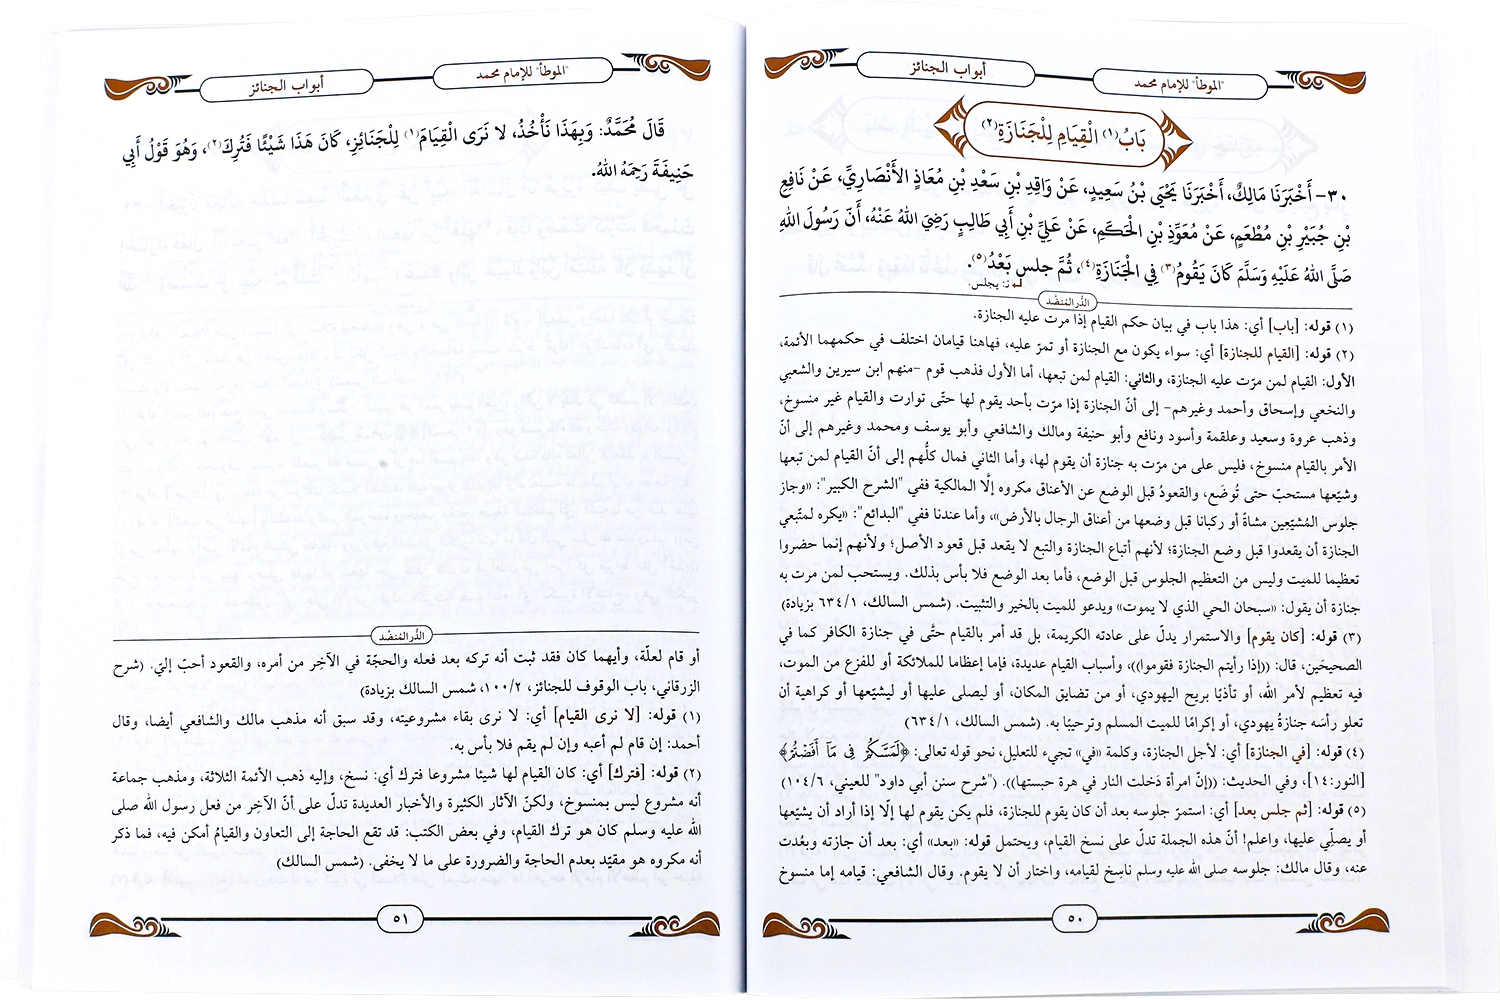 "الموطأ" للإمام محمد
أبواب الجنائز
بَابُ (١) الْقِيَامِ لِلْجَنَازَةِ(٢)
٣٠- أَخْبَرَنَا مَالِكٌ، أَخْبَرَنَا يَحْيَى بْنُ سَعِيدٍ، عَنْ وَاقِدِ بْنِ سَعْدِ بْنِ مُعَاذٍ الأَنْصَارِيِّ، عَنْ نَافِعِ
بْنِ جُبَيْرِ بْنِ مُطْعَمٍ، عَنْ مُعَوِّذِ بْنِ الْحَكَمِ، عَنْ عَلِيِّ بْنِ أَبِي طَالِبٍ رَضِيَ اللهُ عَنْهُ، أَنّ رَسُولَ اللهِ
صَلَّى اللهُ عَلَيْهِ وَسَلَّمَ كَانَ يَقُومُ(٣) فِي الْجَنَازَةِ(٤)، ثُمَّ جلس بَعْدُ(٥).
ن: يجلس.
الدُّر المُنضّد
(١) قوله: [باب] أي: هذا باب في بيان حكم القيام إذا مرت عليه الجنازة.
(٢) قوله: [القيام للجنازة] أي: سواء يكون مع الجنازة أو تمرّ عليه، فهاهنا قيامان اختلف في حكمهما الأئمة،
الأول: القيام لمن مرّت عليه الجنازة، والثاني: القيام لمن تبعها، أما الأول فذهب قوم -منهم ابن سيرين والشعبي
والنخعي وإسحاق وأحمد وغيرهم- إلى أنّ الجنازة إذا مرّت بأحد يقوم لها حتّى توارت والقيام غير منسوخ،
وذهب عروة وسعيد وعلقمة وأسود ونافع وأبو حنيفة ومالك والشافعي وأبو يوسف ومحمد وغيرهم إلى أنّ
الأمر بالقيام منسوخ، فليس على من مرّت به جنازة أن يقوم لها، وأما الثاني فمال كلُّهم إلى أنّ القيام لمن تبعها
وشيّعها مستحبّ حتى تُوضَع، والقعودُ قبل الوضع عن الأعناق مكروه إلّا المالكية ففي "الشرح الكبير": «وجاز
جلوس المُشيّعِين مشاةً أو ركبانا قبل وضعها من أعناق الرجال بالأرض»، وأما عندنا ففي "البدائع": «يكره لمتّبعي
الجنازة أن يقعدوا قبل وضع الجنازة؛ لأنهم أتباع الجنازة والتبع لا يقعد قبل قعود الأصل؛ ولأنهم إنما حضروا
تعظيما للميت وليس من التعظيم الجلوس قبل الوضع، فأما بعد الوضع فلا بأس بذلك. ويستحب لمن مرت به
جنازة أن يقول: «سبحان الحي الذي لا يموت» ويدعو للميت بالخير والتثبيت. (شمس السالك، ٦٣٤/١ بزيادة)
(٣) قوله: [كان يقوم] والاستمرار يدلّ على عادته الكريمة، بل قد أمر بالقيام حتَّى في جنازة الكافر كما في
الصحيحَين، قال: ((إذا رأيتم الجنازة فقوموا))، وأسباب القيام عديدة، فإما إعظاما للملائكة أو للفزع من الموت،
فيه تعظيم لأمر الله، أو تأذيًا بريح اليهودي، أو من تضايق المكان، أو ليصلى عليها أو ليشيّعها أو كراهية أن
تعلو رأسَه جنازةُ يهودي، أو إكرامًا للميت المسلم وترحيبًا به. (شمس السالك، ٦٣٤/١)
(٤) قوله: [في الجنازة] أي: لأجل الجنازة، وكلمة «في» تجيء للتعليل، نحو قوله تعالى: ﴿لَمَسَّكُمْ فِي مَآ أَفَضْتُمْ﴾
[النور:١٤]، وفي الحديث: ((إنّ امرأة دَخلت النار في هرة حبستها)). ("شرح سنن أبي داود" للعيني، ١٠٤/٦)
(٥) قوله: [ثم جلس بعد] أي: استمرّ جلوسه بعد أن كان يقوم للجنازة، فلم يكن يقوم لها إلّا إذا أراد أن يشيّعها
أو يصلِّي عليها، واعلم! أنّ هذه الجملة تدلّ على نسخ القيام، ويحتمل قوله: «بعد» أي: بعد أن جازته وبعُدت
عنه، وقال مالك: جلوسه صلى الله عليه وسلم ناسِخ لقيامه، واختار أن لا يقوم. وقال الشافعي: قيامه إما منسوخ
٥٠
"الموطأ" للإمام محمد
أبواب الجنائز
قَالَ مُحَمَّدٌ: وَبِهَذَا نَأْخُذُ، لا نَرَى الْقِيَامَ(١) لِلْجَنَائِزِ، كَانَ هَذَا شَيْئًا فَتُرِكَ(٢)، وَهُوَ قَوْلُ أَبِي
حَنِيفَةَ رَحِمَهُ اللهُ.
الدُّر المُنضّد
أو قام لعلّة، وأيهما كان فقد ثبت أنه تركه بعد فعله والحجّة في الآخِر من أمره، والقعود أحبّ إليّ. (شرح
الزرقاني، باب الوقوف للجنائز، ١٠٠/٢، شمس السالك بزيادة)
(١) قوله: [لا نرى القيام] أي: لا نرى بقاء مشروعيته، وقد سبق أنه مذهب مالك والشافعي أيضا، وقال
أحمد: إن قام لم أعبه وإن لم يقم فلا بأس به.
(٢) قوله: [فترك] أي: كان القيام لها شيئا مشروعا فترك أي: نسخ، وإليه ذهب الأئمة الثلاثة، ومذهب جماعة
أنه مشروع ليس بمنسوخ، ولكنّ الآثار الكثيرة والأخبار العديدة تدلّ على أنّ الآخِر من فعل رسول الله صلى
الله عليه وسلم كان هو ترك القيام، وفي بعض الكتب: قد تقع الحاجة إلى التعاون والقيامُ أمكن فيه، فما ذكر
أنه مكروه هو مقيّد بعدم الحاجة والضرورة على ما لا يخفى. (شمس السالك)
٥١